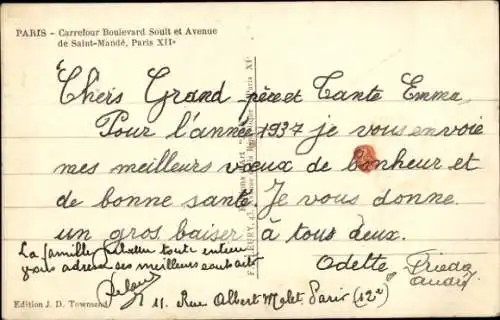 PARIS - Carrefour Boulevard Soult et Avenue
de Saint-Mandé, Paris XIIe
Chers Grand-père et Tante Emma,
Pour l'année 1937 je vous envoie
mes meilleurs vœux de bonheur et
de bonne santé. Je vous donne
un gros baiser à tous deux.
Odette Frieda
André
La famille toute entière
vous adresse ses meilleurs souhaits
11. Rue Albert Malet Paris (12e)
Edition J. D. Townsend